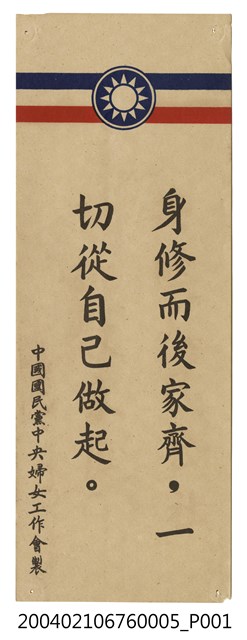 身修而後家齊，一
切從自己做起。
中國國民黨中央婦女工作會製
200402106760005_P001